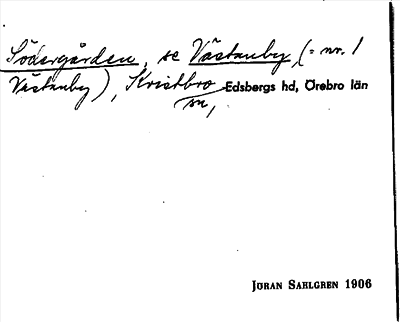 Södergården, se Västanby, (= nr. 1
Västanby), Kvistbro
sn, Edsbergs hd, Örebro län
JÖRAN SAHLGREN 1906